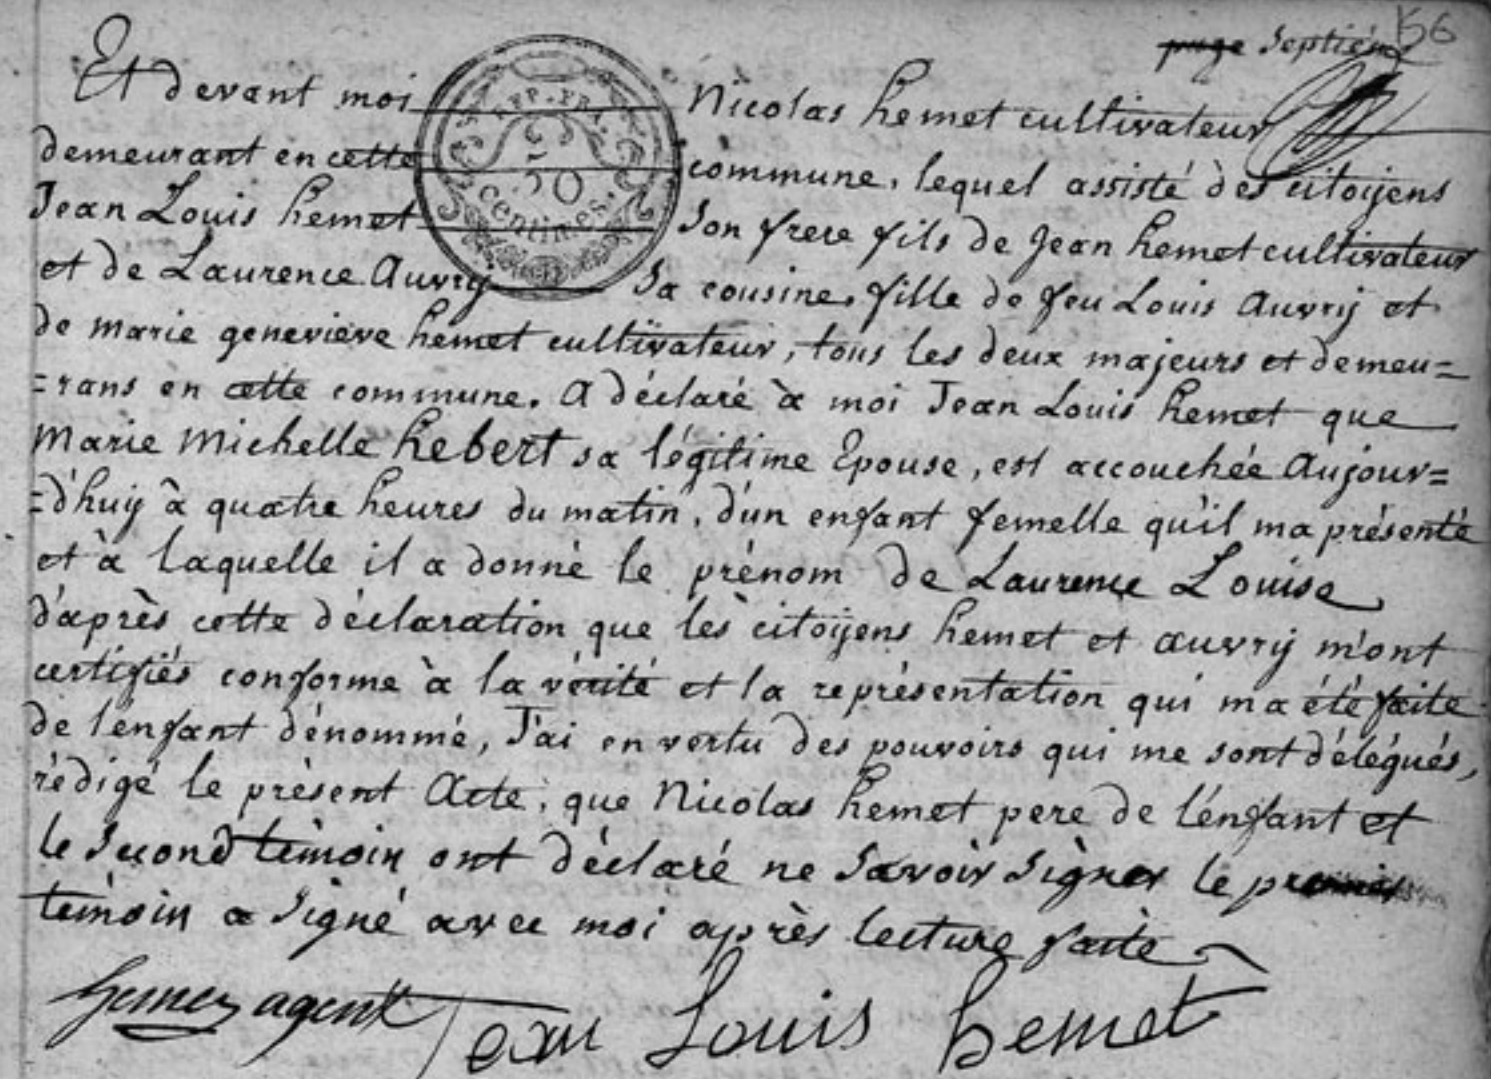 page septiéme 156
Et devant moi Nicolas hemet cultivateur
demeurant en cette commune, lequel assisté des citoijens
Jean Louis hemet son frere fils de Jean hemet cultivateur
et de Laurence Auvrij sa cousine, fille de feu Louis Auvrij et
de marie geneviève hemet cultivateur, tous les deux majeurs et demeu=
=rans en cette commune. A déclaré à moi Jean Louis hemet que
Marie Michelle hebert sa légitime Epouse, est accouchée Aujour=
=d'huij à quatre heures du matin, d'un enfant femelle qu'il ma présenté
et à laquelle il a donné le prénom de Laurence Louise
d'après cette déclaration que lès citoijens hemet et auvrij m'ont
certifiés conforme à la vérité et la représentation qui ma été faite
de l'enfant dénommé, J'ai en vertu des pouvoirs qui me sont délégués,
rédigé le présent Acte, que Nicolas hemet pere de l'enfant et
le second témoin ont déclaré ne savoir signer le premier
témoin a signé avec moi après lecture faite
agent Jean Louis hemet
REP. FRA.
50
centimes.